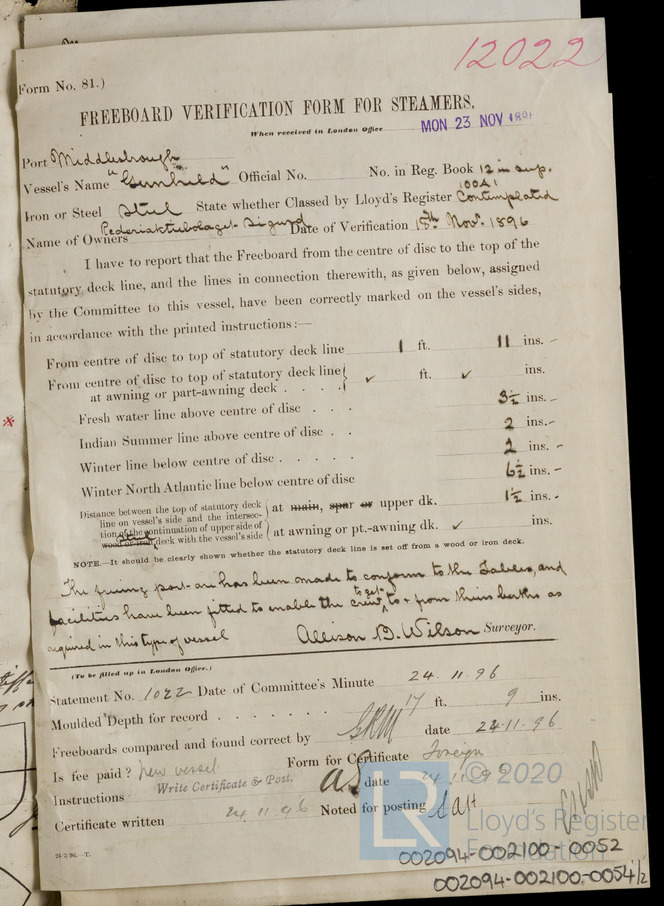 12022
Form No. 81.)
FREEBOARD VERIFICATION FORM FOR STEAMERS.
When received in London Office MON 23 NOV 1896
Port Middlesbrough
Vessel's Name "Gunhild" Official No. No. in Reg. Book 12 in sup.
Iron or Steel Steel State whether Classed by Lloyd's Register 100A1 Contemplated
Name of Owners Rederiaktiebolaget Sigurd Date of Verification 18th Nov. 1896
I have to report that the Freeboard from the centre of disc to the top of the
statutory deck line, and the lines in connection therewith, as given below, assigned
by the Committee to this vessel, have been correctly marked on the vessel's sides,
in accordance with the printed instructions:—
From centre of disc to top of statutory deck line 1 ft. 11 ins.
From centre of disc to top of statutory deck line
at awning or part-awning deck . . . . ✓ ft. ✓ ins.
Fresh water line above centre of disc . . . 3½ ins.
Indian Summer line above centre of disc . . 2 ins.
Winter line below centre of disc . . . . . 2 ins.
Winter North Atlantic line below centre of disc 6½ ins.
Distance between the top of statutory deck
line on vessel's side and the intersec-
tion of the continuation of upper side of
steel
wood or iron deck with the vessel's side
at main, spar or upper dk. 1½ ins.
at awning or pt.-awning dk. ✓ ins.
NOTE.—It should be clearly shown whether the statutory deck line is set off from a wood or iron deck.
The freeing port area has been made to conform to the Tables, and
facilities have been fitted to enable the crew to get to & from their berths as
required in this type of vessel
Allison D. Wilson Surveyor.
(To be filled up in London Office.)
Statement No. 1022 Date of Committee's Minute 24.11.96
Moulded Depth for record . . . . . . . 17 ft. 9 ins.
Freeboards compared and found correct by date 24.11.96
Is fee paid? New vessel Form for Certificate Foreign
Instructions Write Certificate & Post. date 24.11.96
Certificate written 24 11 96 Noted for posting
24/3/96.—T.
LR © 2020
Lloyd's Register
Foundation
002094-002100-0052
002094-002100-0054 1/2